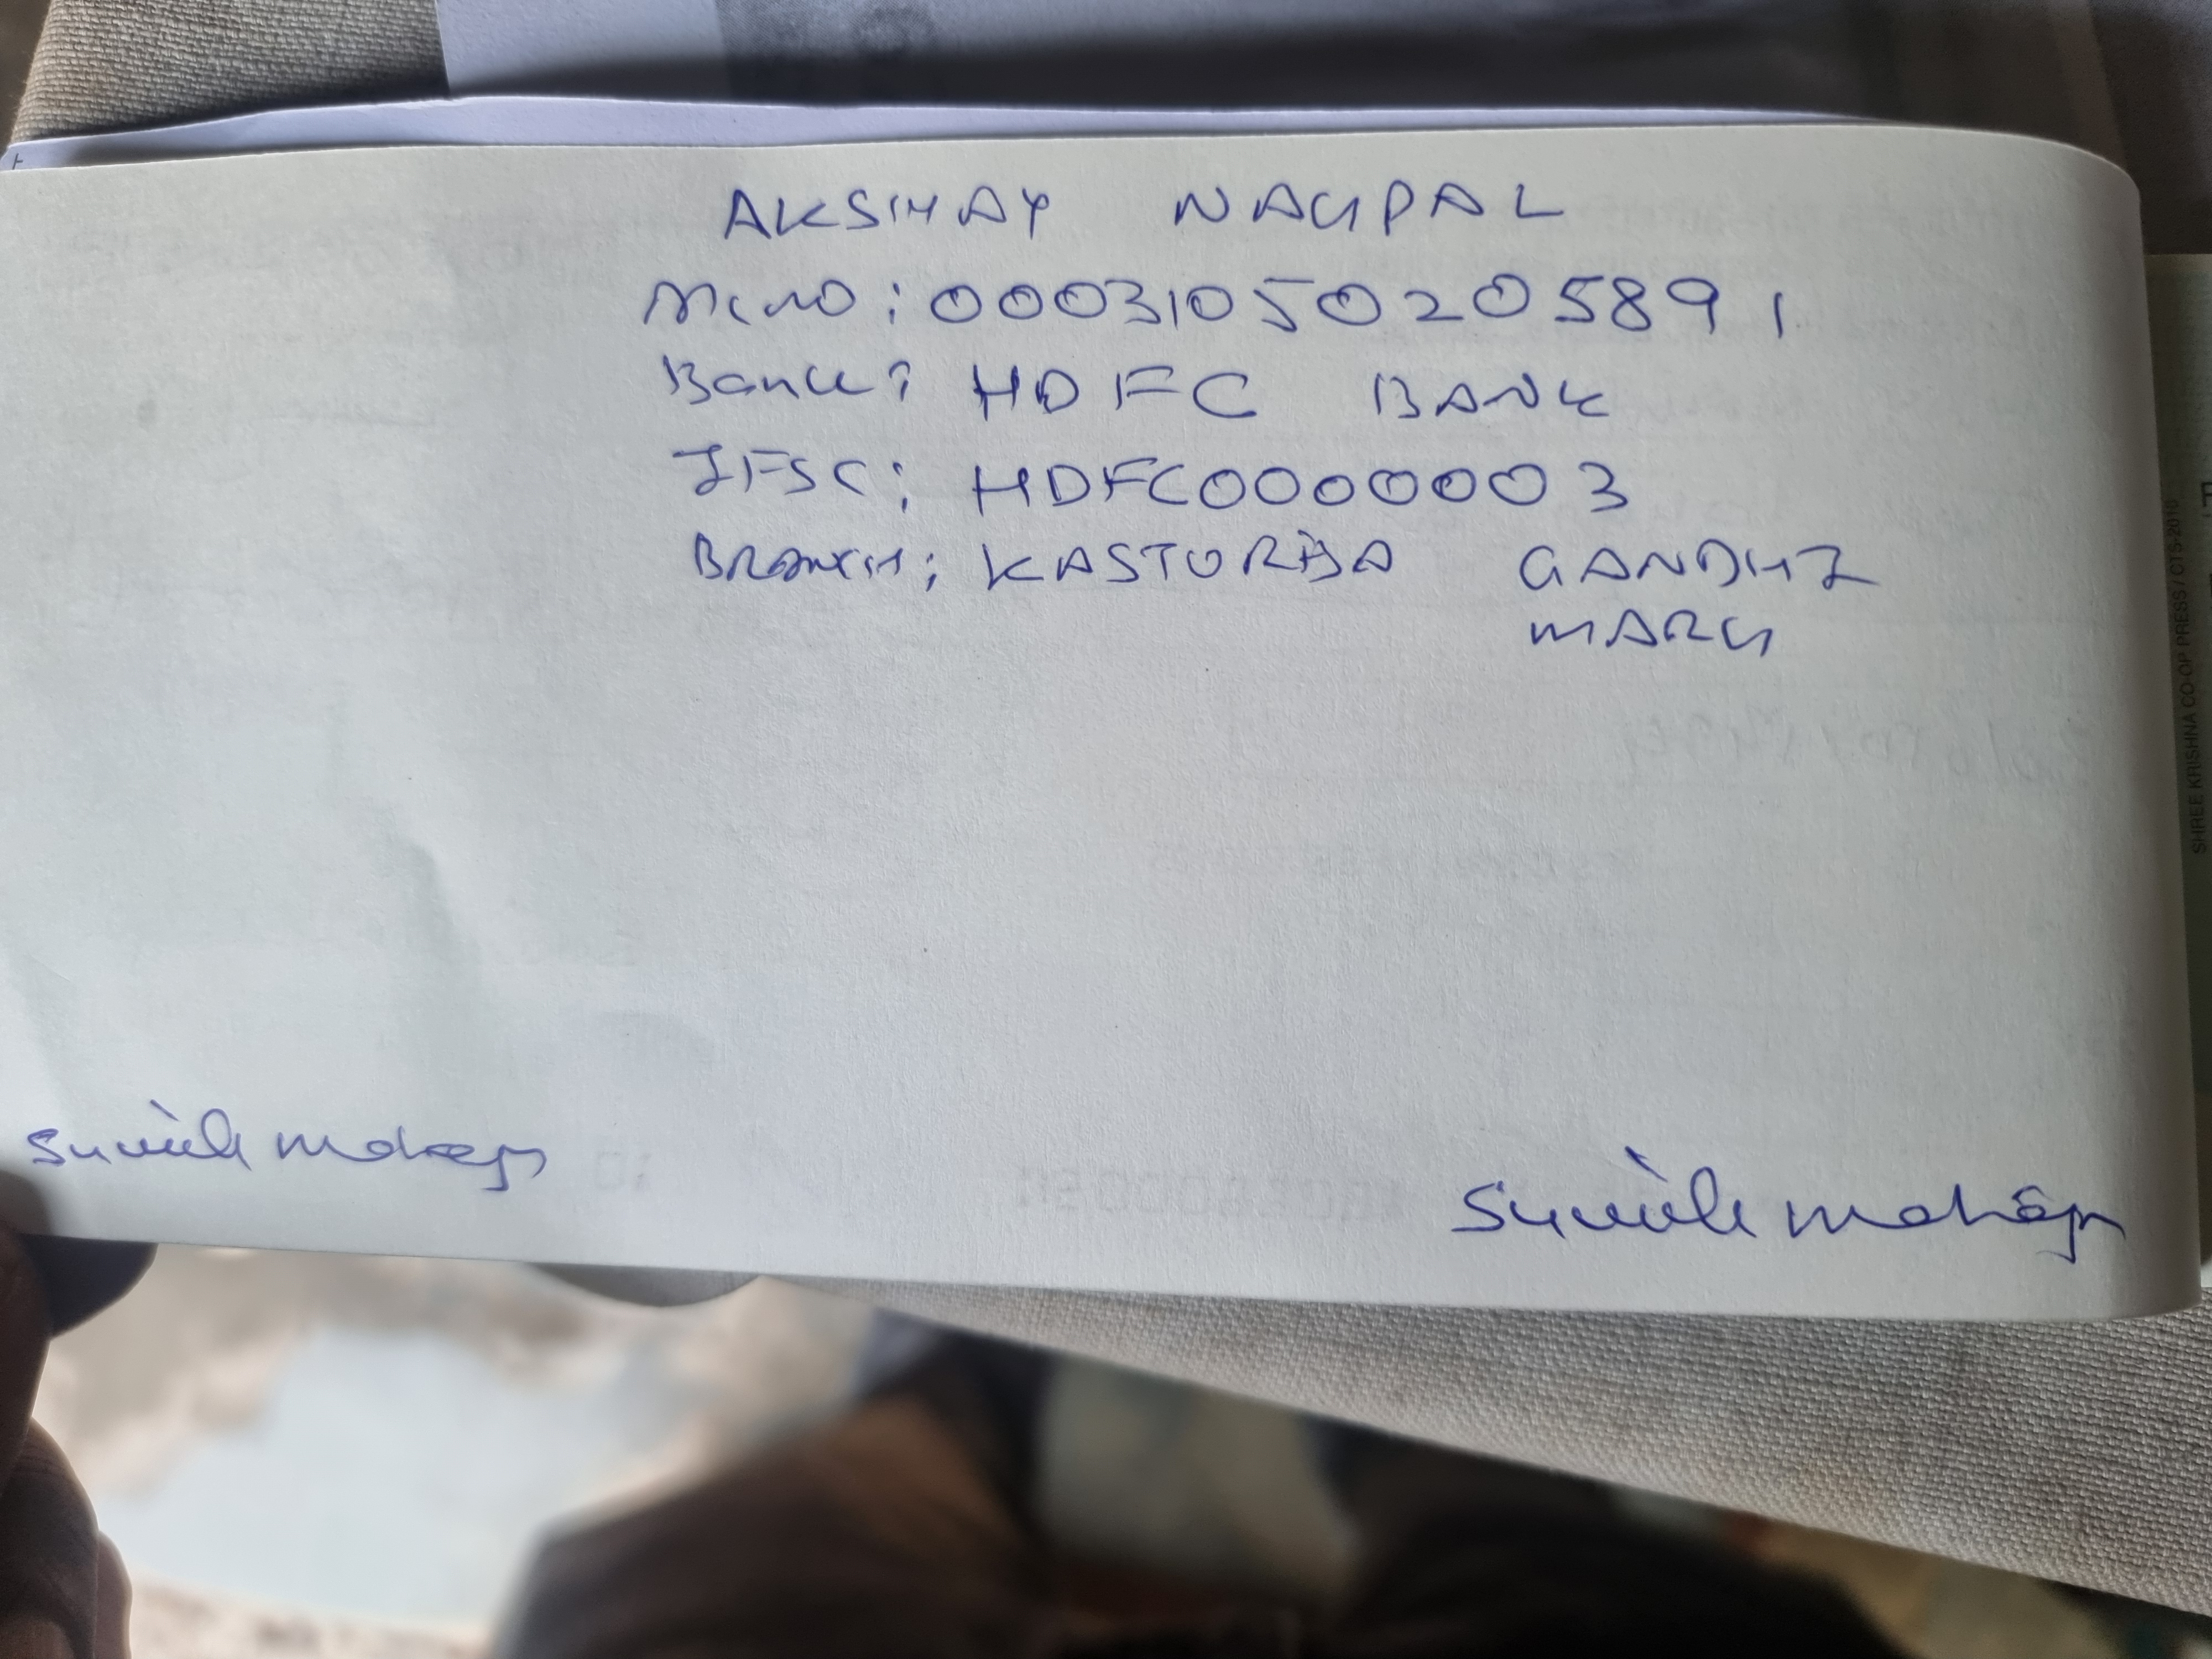 AKSHAY NAGPAL
A/c NO : 00031050205891
Bank : HDFC BANK
IFSC : HDFC0000003
BRANCH : KASTURBA GANDHI
MARG
SHREE KRISHNA CO-OP PRESS / CTS-2010